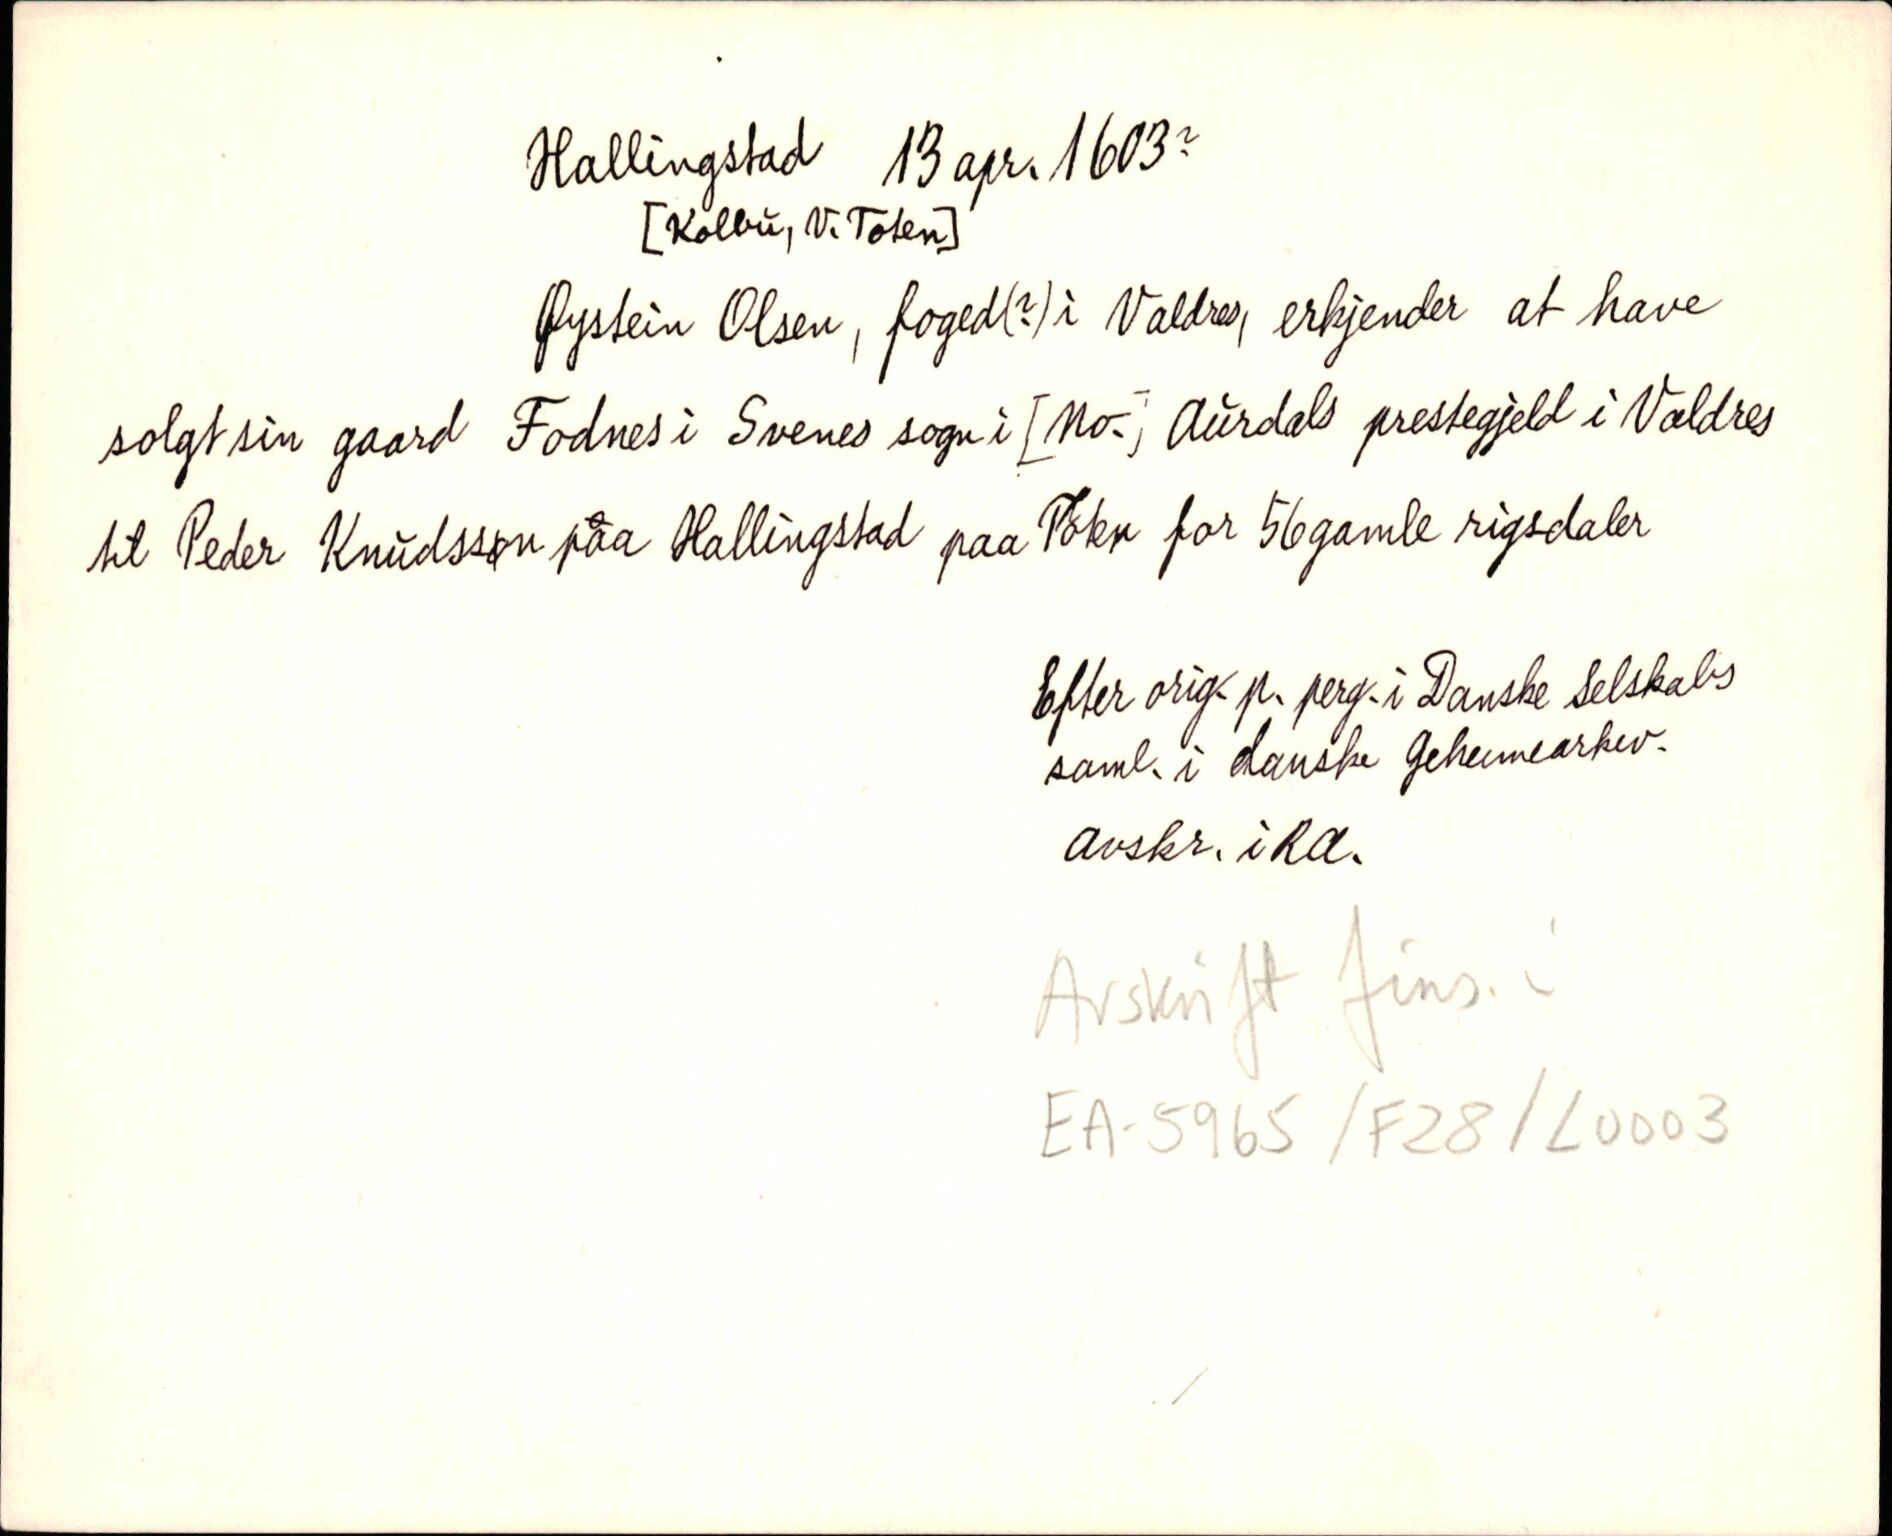 Hallingstad 13 apr. 1603?
[Kolbu, V. Toten]
Øystein Olsen, foged(?) i Valdres, erkjender at have
solgt sin gaard Fodnes i Svenes sogn i [No.] Aurdals prestegjeld i Valdres
til Peder Knudsson paa Hallingstad paa Toten for 56 gamle rigsdaler
Efter orig. p. perg. i Danske Selskabs
saml. i danske Geheimearkiv.
Avskr. i RA.
Avskrift fins. i
EA-5965/F28/L0003